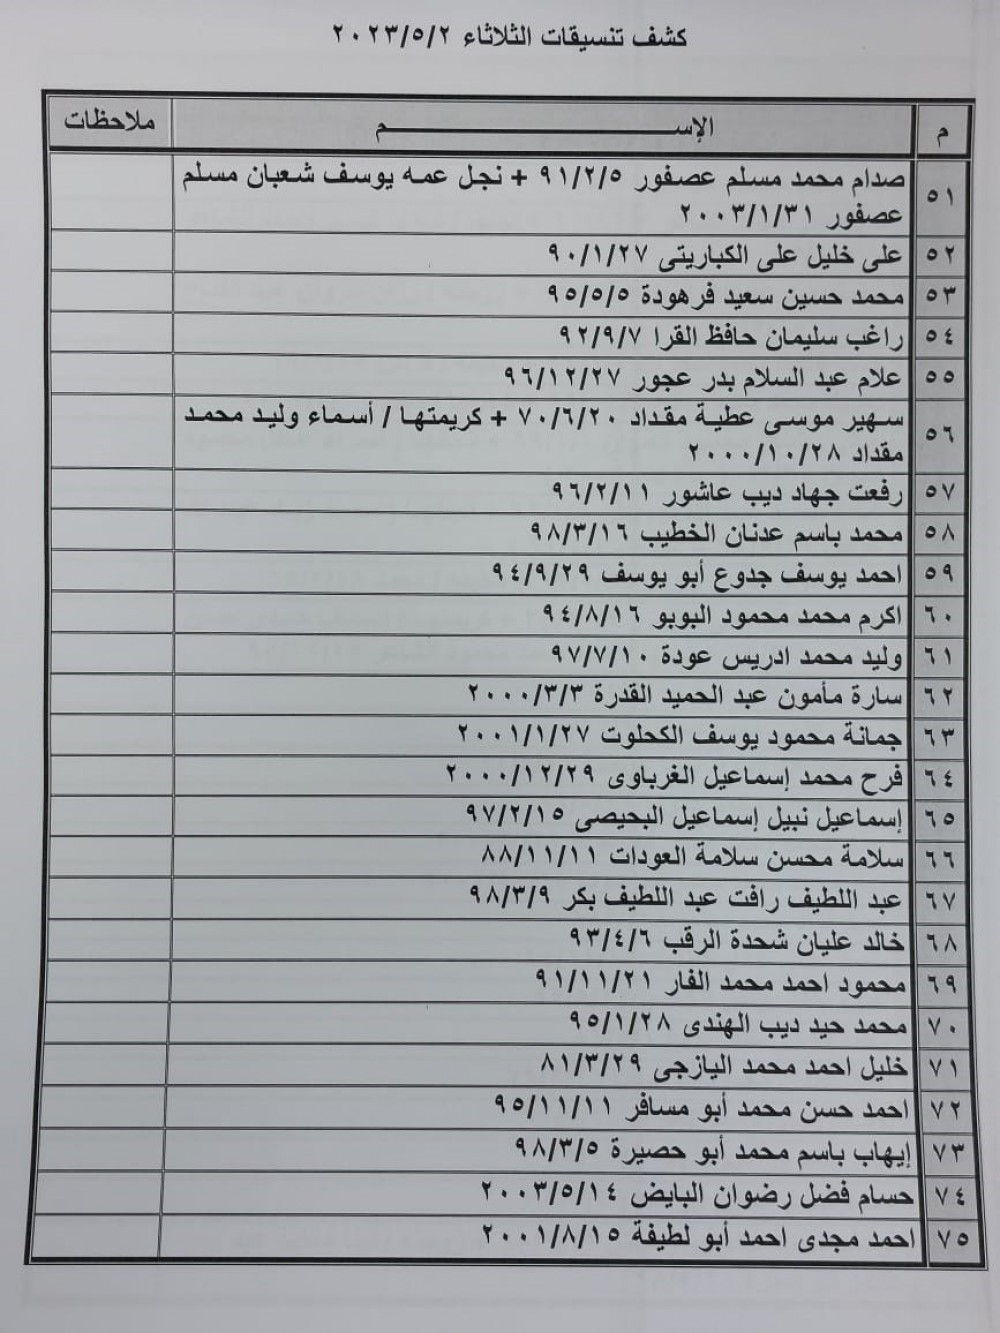 كشف تنسيقات الثلاثاء ٢٠٢٣/٥/٢
م الإســـــــــم ملاحظات
٥١ صدام محمد مسلم عصفور ٩١/٢/٥ + نجل عمه يوسف شعبان مسلم
عصفور ٢٠٠٣/١/٣١
٥٢ على خليل على الكباريتى ٩٠/١/٢٧
٥٣ محمد حسين سعيد فرهودة ٩٥/٥/٥
٥٤ راغب سليمان حافظ القرا ٩٢/٩/٧
٥٥ علام عبد السلام بدر عجور ٩٦/١٢/٢٧
٥٦ سهير موسى عطية مقداد ٧٠/٦/٢٠ + كريمتها / أسماء وليد محمد
مقداد ٢٠٠٠/١٠/٢٨
٥٧ رفعت جهاد ديب عاشور ٩٦/٢/١١
٥٨ محمد باسم عدنان الخطيب ٩٨/٣/١٦
٥٩ احمد يوسف جدوع أبو يوسف ٩٤/٩/٢٩
٦٠ اكرم محمد محمود البوبو ٩٤/٨/١٦
٦١ وليد محمد ادريس عودة ٩٧/٧/١٠
٦٢ سارة مأمون عبد الحميد القدرة ٢٠٠٠/٣/٣
٦٣ جمانة محمود يوسف الكحلوت ٢٠٠١/١/٢٧
٦٤ فرح محمد إسماعيل الغرباوى ٢٠٠٠/١٢/٢٩
٦٥ إسماعيل نبيل إسماعيل البحيصى ٩٧/٢/١٥
٦٦ سلامة محسن سلامة العودات ٨٨/١١/١١
٦٧ عبد اللطيف رافت عبد اللطيف بكر ٩٨/٣/٩
٦٨ خالد عليان شحدة الرقب ٩٣/٤/٦
٦٩ محمود احمد محمد الفار ٩١/١١/٢١
٧٠ محمد حيد ديب الهندى ٩٥/١/٢٨
٧١ خليل احمد محمد اليازجى ٨١/٣/٢٩
٧٢ احمد حسن محمد أبو مسافر ٩٥/١١/١١
٧٣ إيهاب باسم محمد أبو حصيرة ٩٨/٣/٥
٧٤ حسام فضل رضوان البايض ٢٠٠٣/٥/١٤
٧٥ احمد مجدى احمد أبو لطيفة ٢٠٠١/٨/١٥